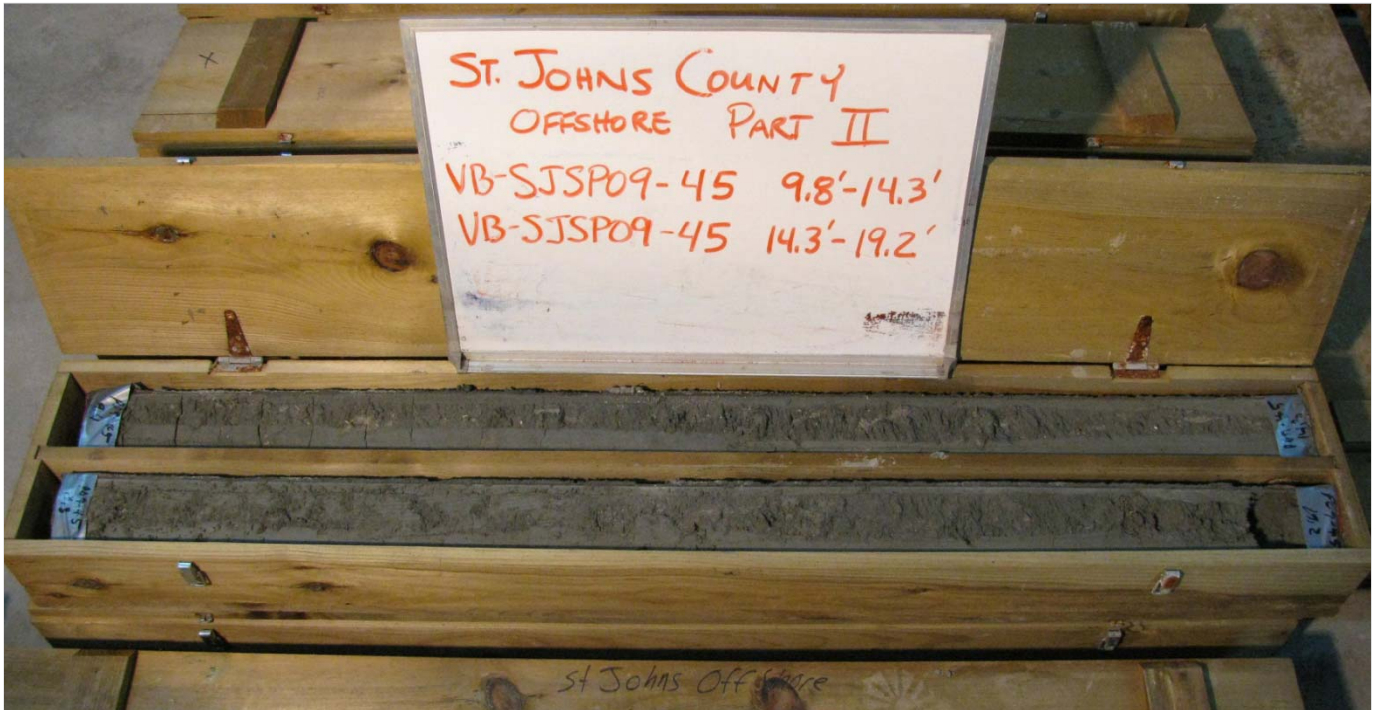 ST. JOHNS COUNTY
OFFSHORE PART II
VB-SJSP09-45 9.8'-14.3'
VB-SJSP09-45 14.3'-19.2'
St Johns Offshore